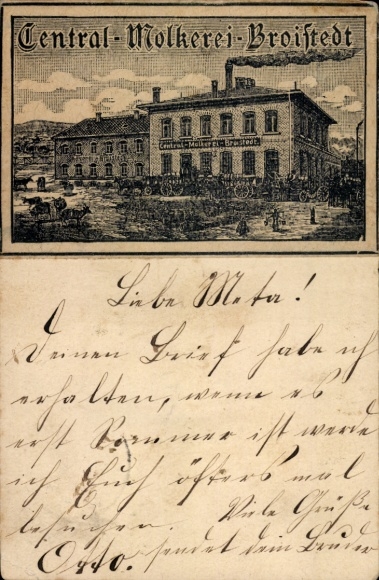 Central-Molkerei-Broistedt
Central-Molkerei-Broistedt
Liebe Meta!
Deinen Brief habe ich
erhalten, wenn es
erst Sommer ist werde
ich Euch öfters mal
besuchen. Viele Grüße
Otto. sendet dein Bruder